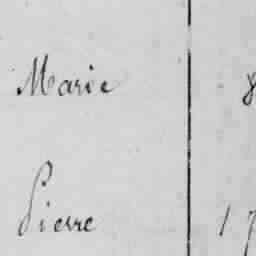 Marie 8
Pierre 17